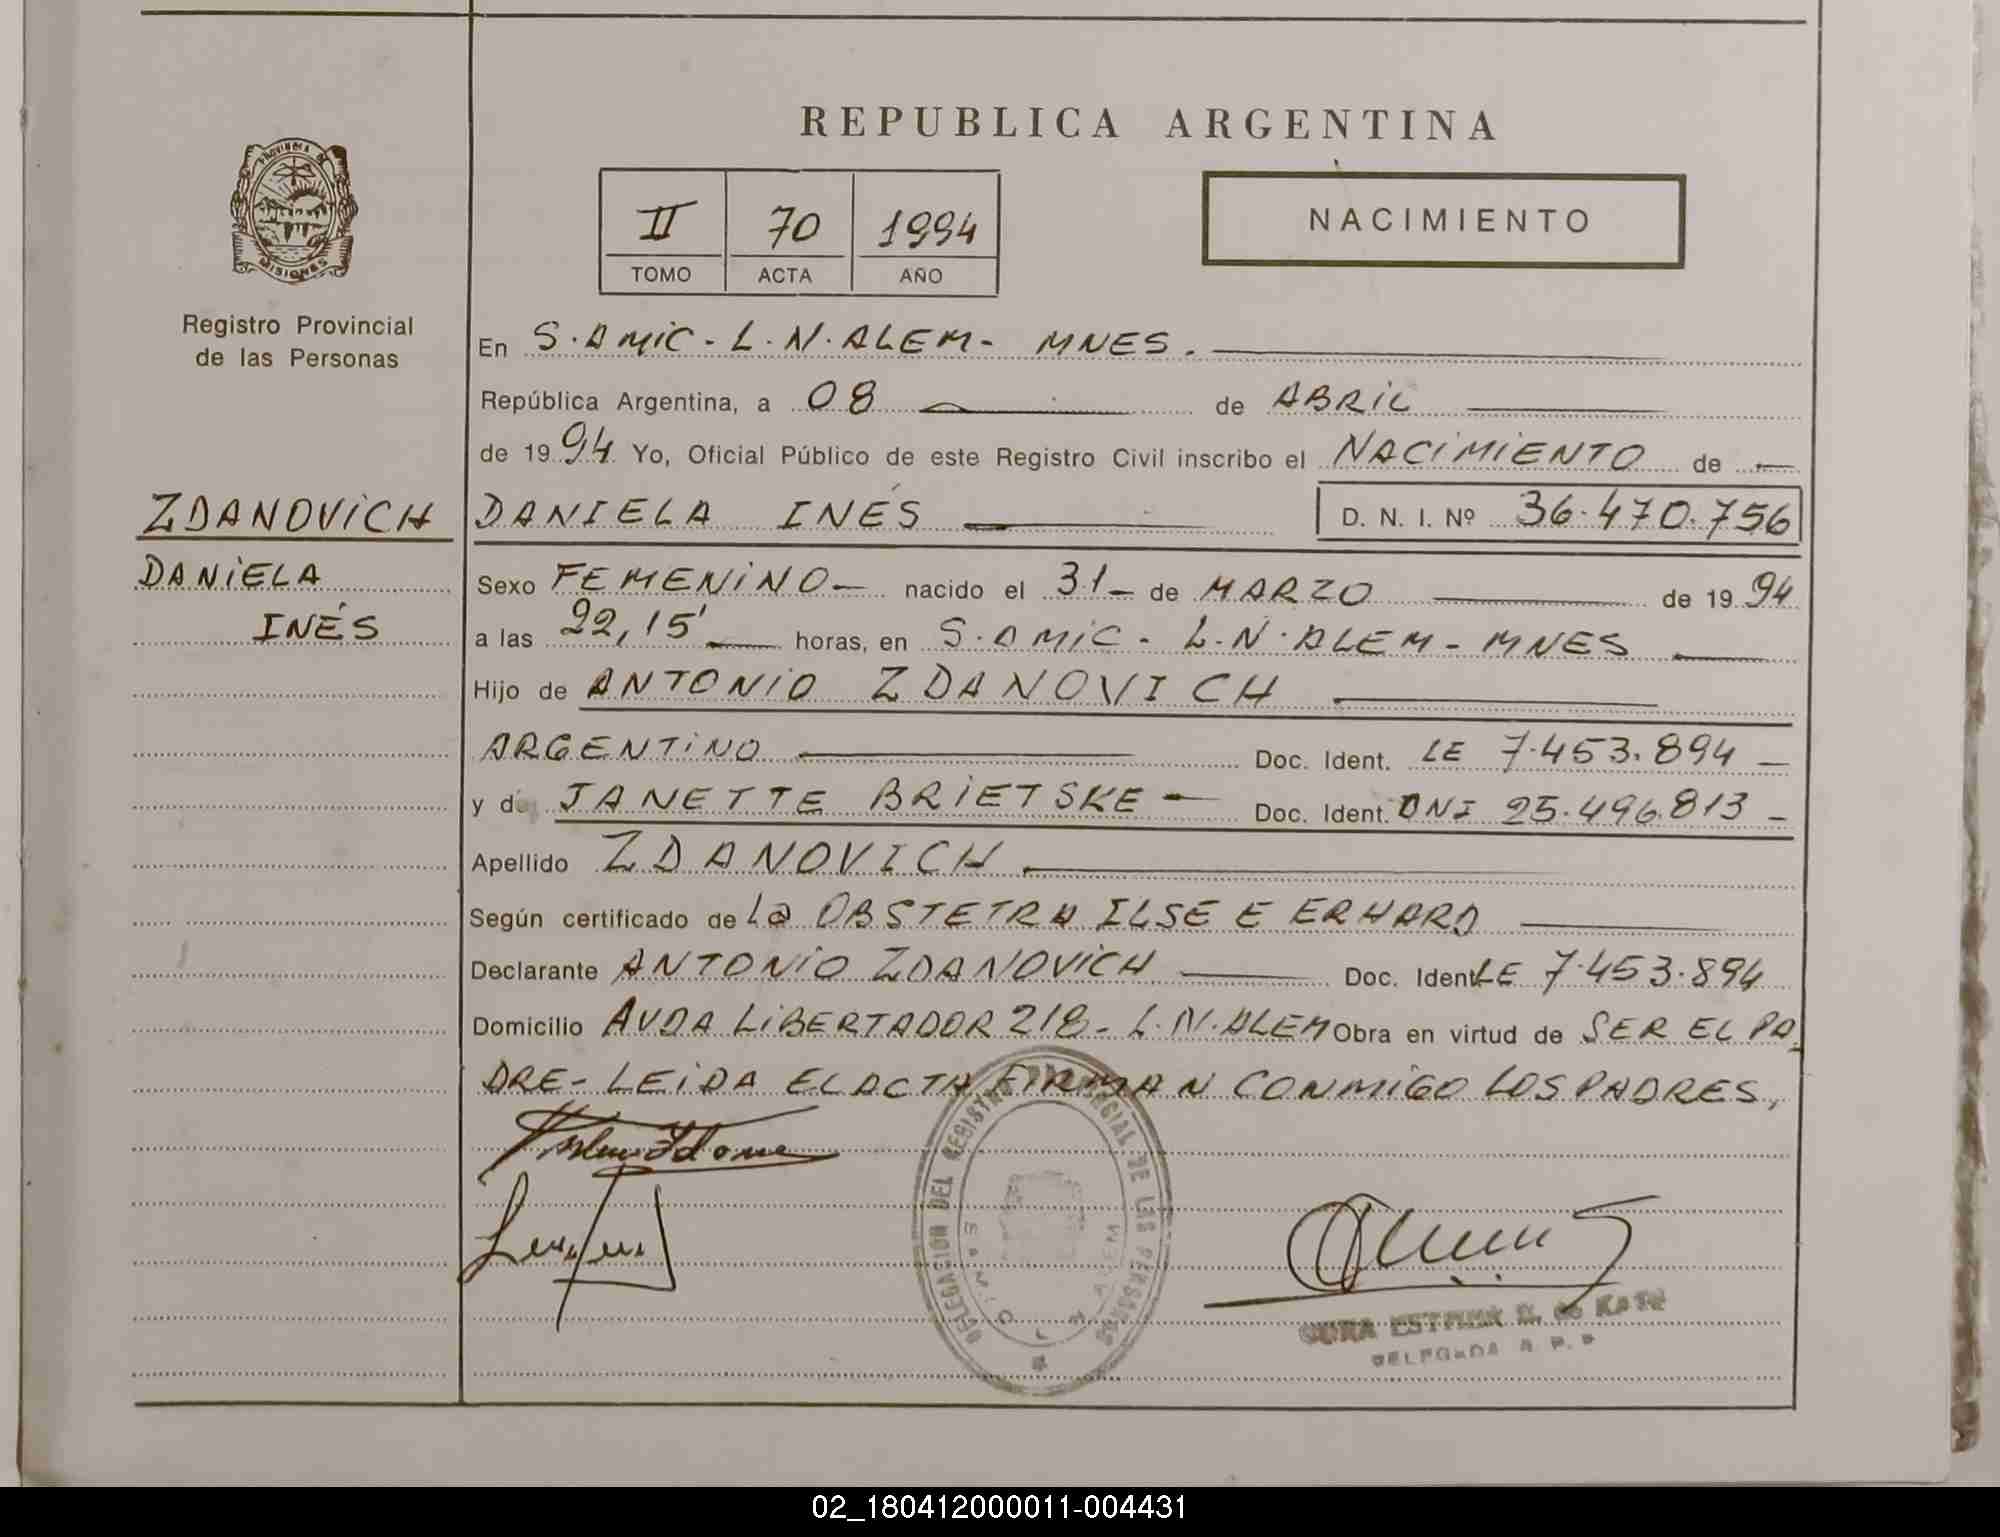 REPUBLICA ARGENTINA
PROVINCIA DE
MISIONES
II 70 1994
TOMO ACTA AÑO
NACIMIENTO
Registro Provincial
de las Personas
En S. AMIC - L. N. ALEM - MNES.
República Argentina, a 08 de ABRIL
de 1994 Yo, Oficial Público de este Registro Civil inscribo el NACIMIENTO de
ZDANOVICH
DANIELA INÉS D. N. I. Nº 36.470.756
DANIELA
INÉS
Sexo FEMENINO nacido el 31 de MARZO de 1994
a las 22,15' horas, en S. AMIC - L. N. ALEM - MNES
Hijo de ANTONIO ZDANOVICH
ARGENTINO Doc. Ident. LE 7.453.894
y de JANETTE BRIETSKE Doc. Ident. DNI 25.496.813
Apellido ZDANOVICH
Según certificado de La OBSTETRA ILSE E ERHARD
Declarante ANTONIO ZDANOVICH Doc. Ident LE 7.453.894
Domicilio AVDA LIBERTADOR 218 - L. N. ALEM Obra en virtud de SER EL PA
DRE - LEIDA EL ACTA FIRMAN CONMIGO LOS PADRES,
DELEGACION DEL REGISTRO PROVINCIAL DE LAS PERSONAS
ALEM
DELEGADA R. P. P
02_180412000011-004431